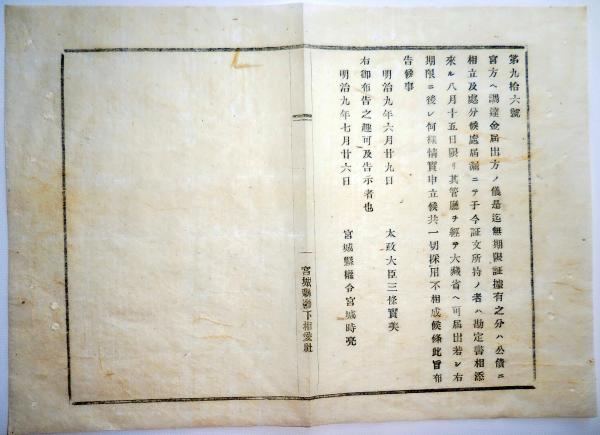 第九拾六號
官方ヘ調達金届出方ノ儀是迄無期限証據有之分ハ公債ニ
相立及處分候處届漏ニテ于今証文所持ノ者ハ勘定書相添
來ル八月十五日限リ其管廳ヲ經テ大藏省ヘ可届出若シ右
期限ニ後レ何樣情實申立候共一切採用不相成候條此旨布
告候事
明治九年六月廿九日
太政大臣三條實美
右御布告之趣可及告示者也
明治九年七月廿六日
宮城縣權令宮城時亮
宮城縣
下相愛社